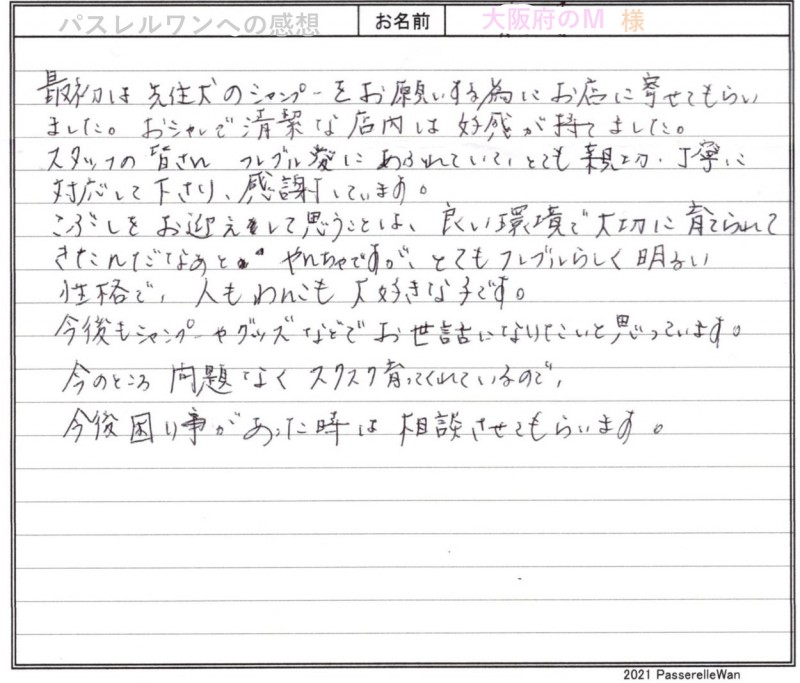 パスレルワンへの感想 お名前 大阪府のM 様
最初は先住犬のシャンプーをお願いする為にお店に寄せてもらい
ました。おシャレで清潔な店内は好感が持てました。
スタッフの皆さん フレブル愛にあふれていて、とても親切・丁寧に
対応して下さり、感謝しています。
こぶしをお迎えして思うことは、良い環境で大切に育てられて
きたんだなあと。やんちゃですが、とてもフレブルらしく明るい
性格で、人もわんこも大好きな子です。
今後もシャンプーやグッズなどでお世話になりたいと思っています。
今のところ問題なくスクスク育ってくれているので、
今後困り事があった時は相談させてもらいます。
2021 PasserelleWan